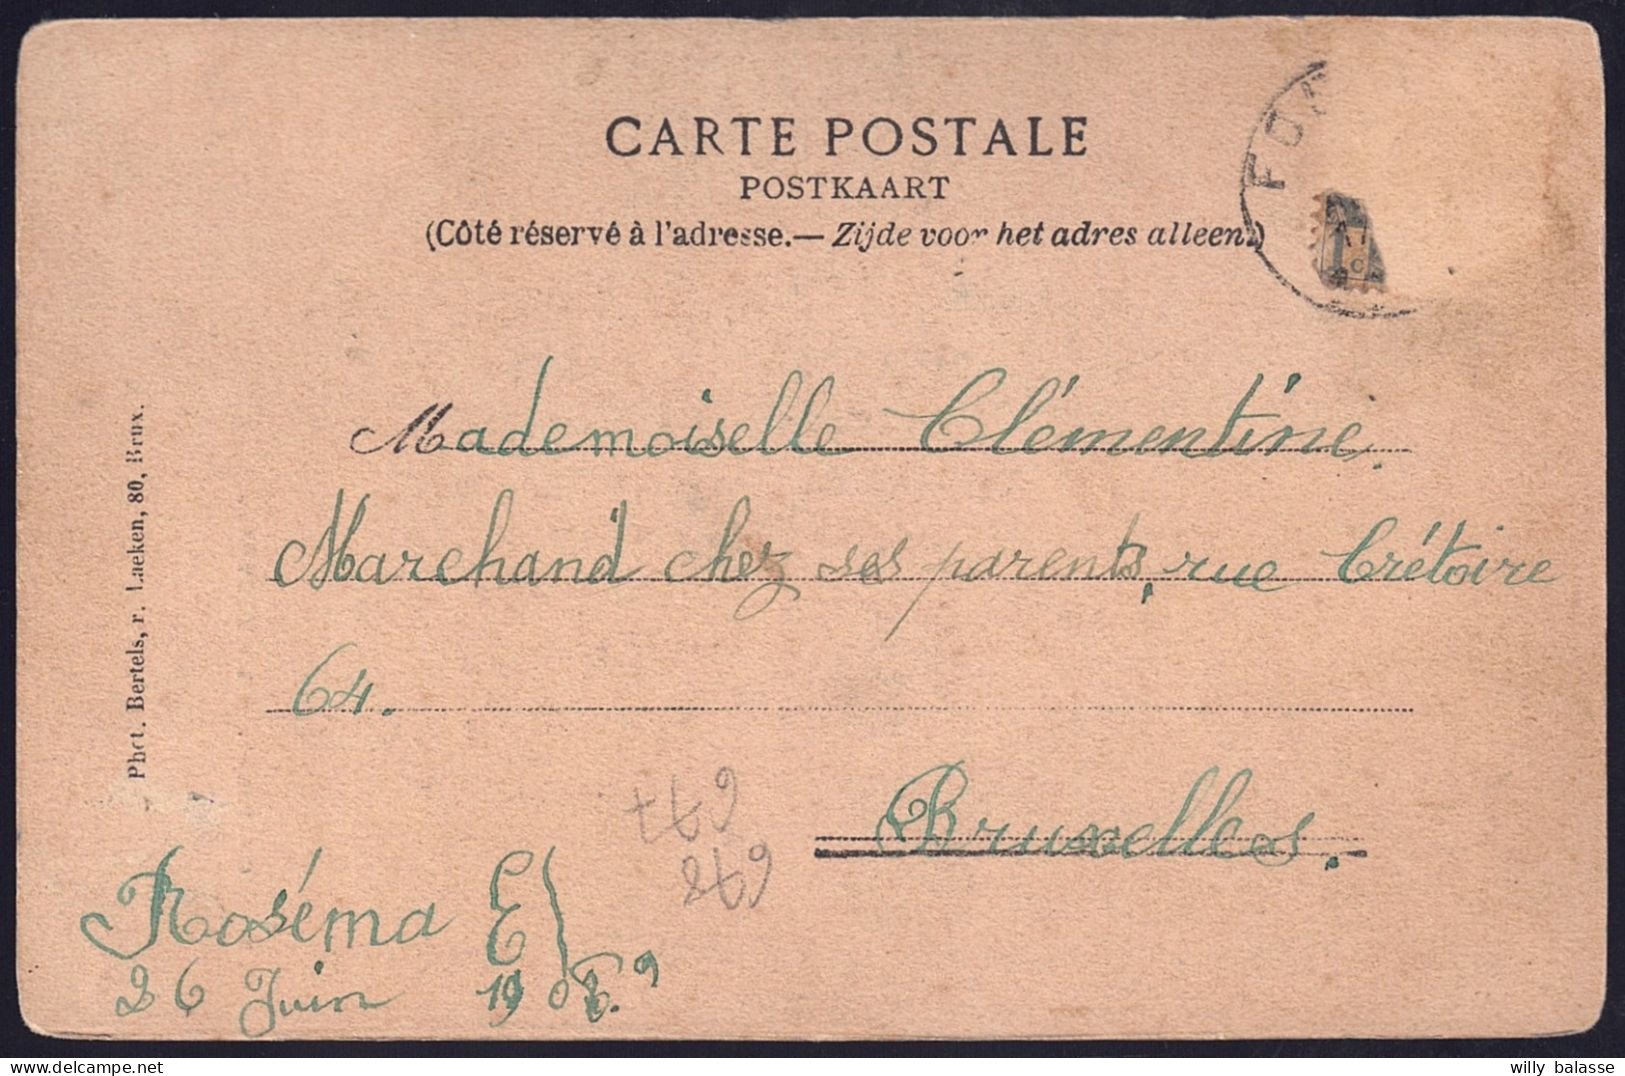 CARTE POSTALE
POSTKAART
(Côté réservé à l'adresse.— Zijde voor het adres alleen.)
Mademoiselle Clémentine
Marchand chez ses parents, rue Crétoire
64.
Bruxelles.
Roséma E
26 Juin 190
Phot. Bertels, r. Laeken, 80, Brux.
willy balasse